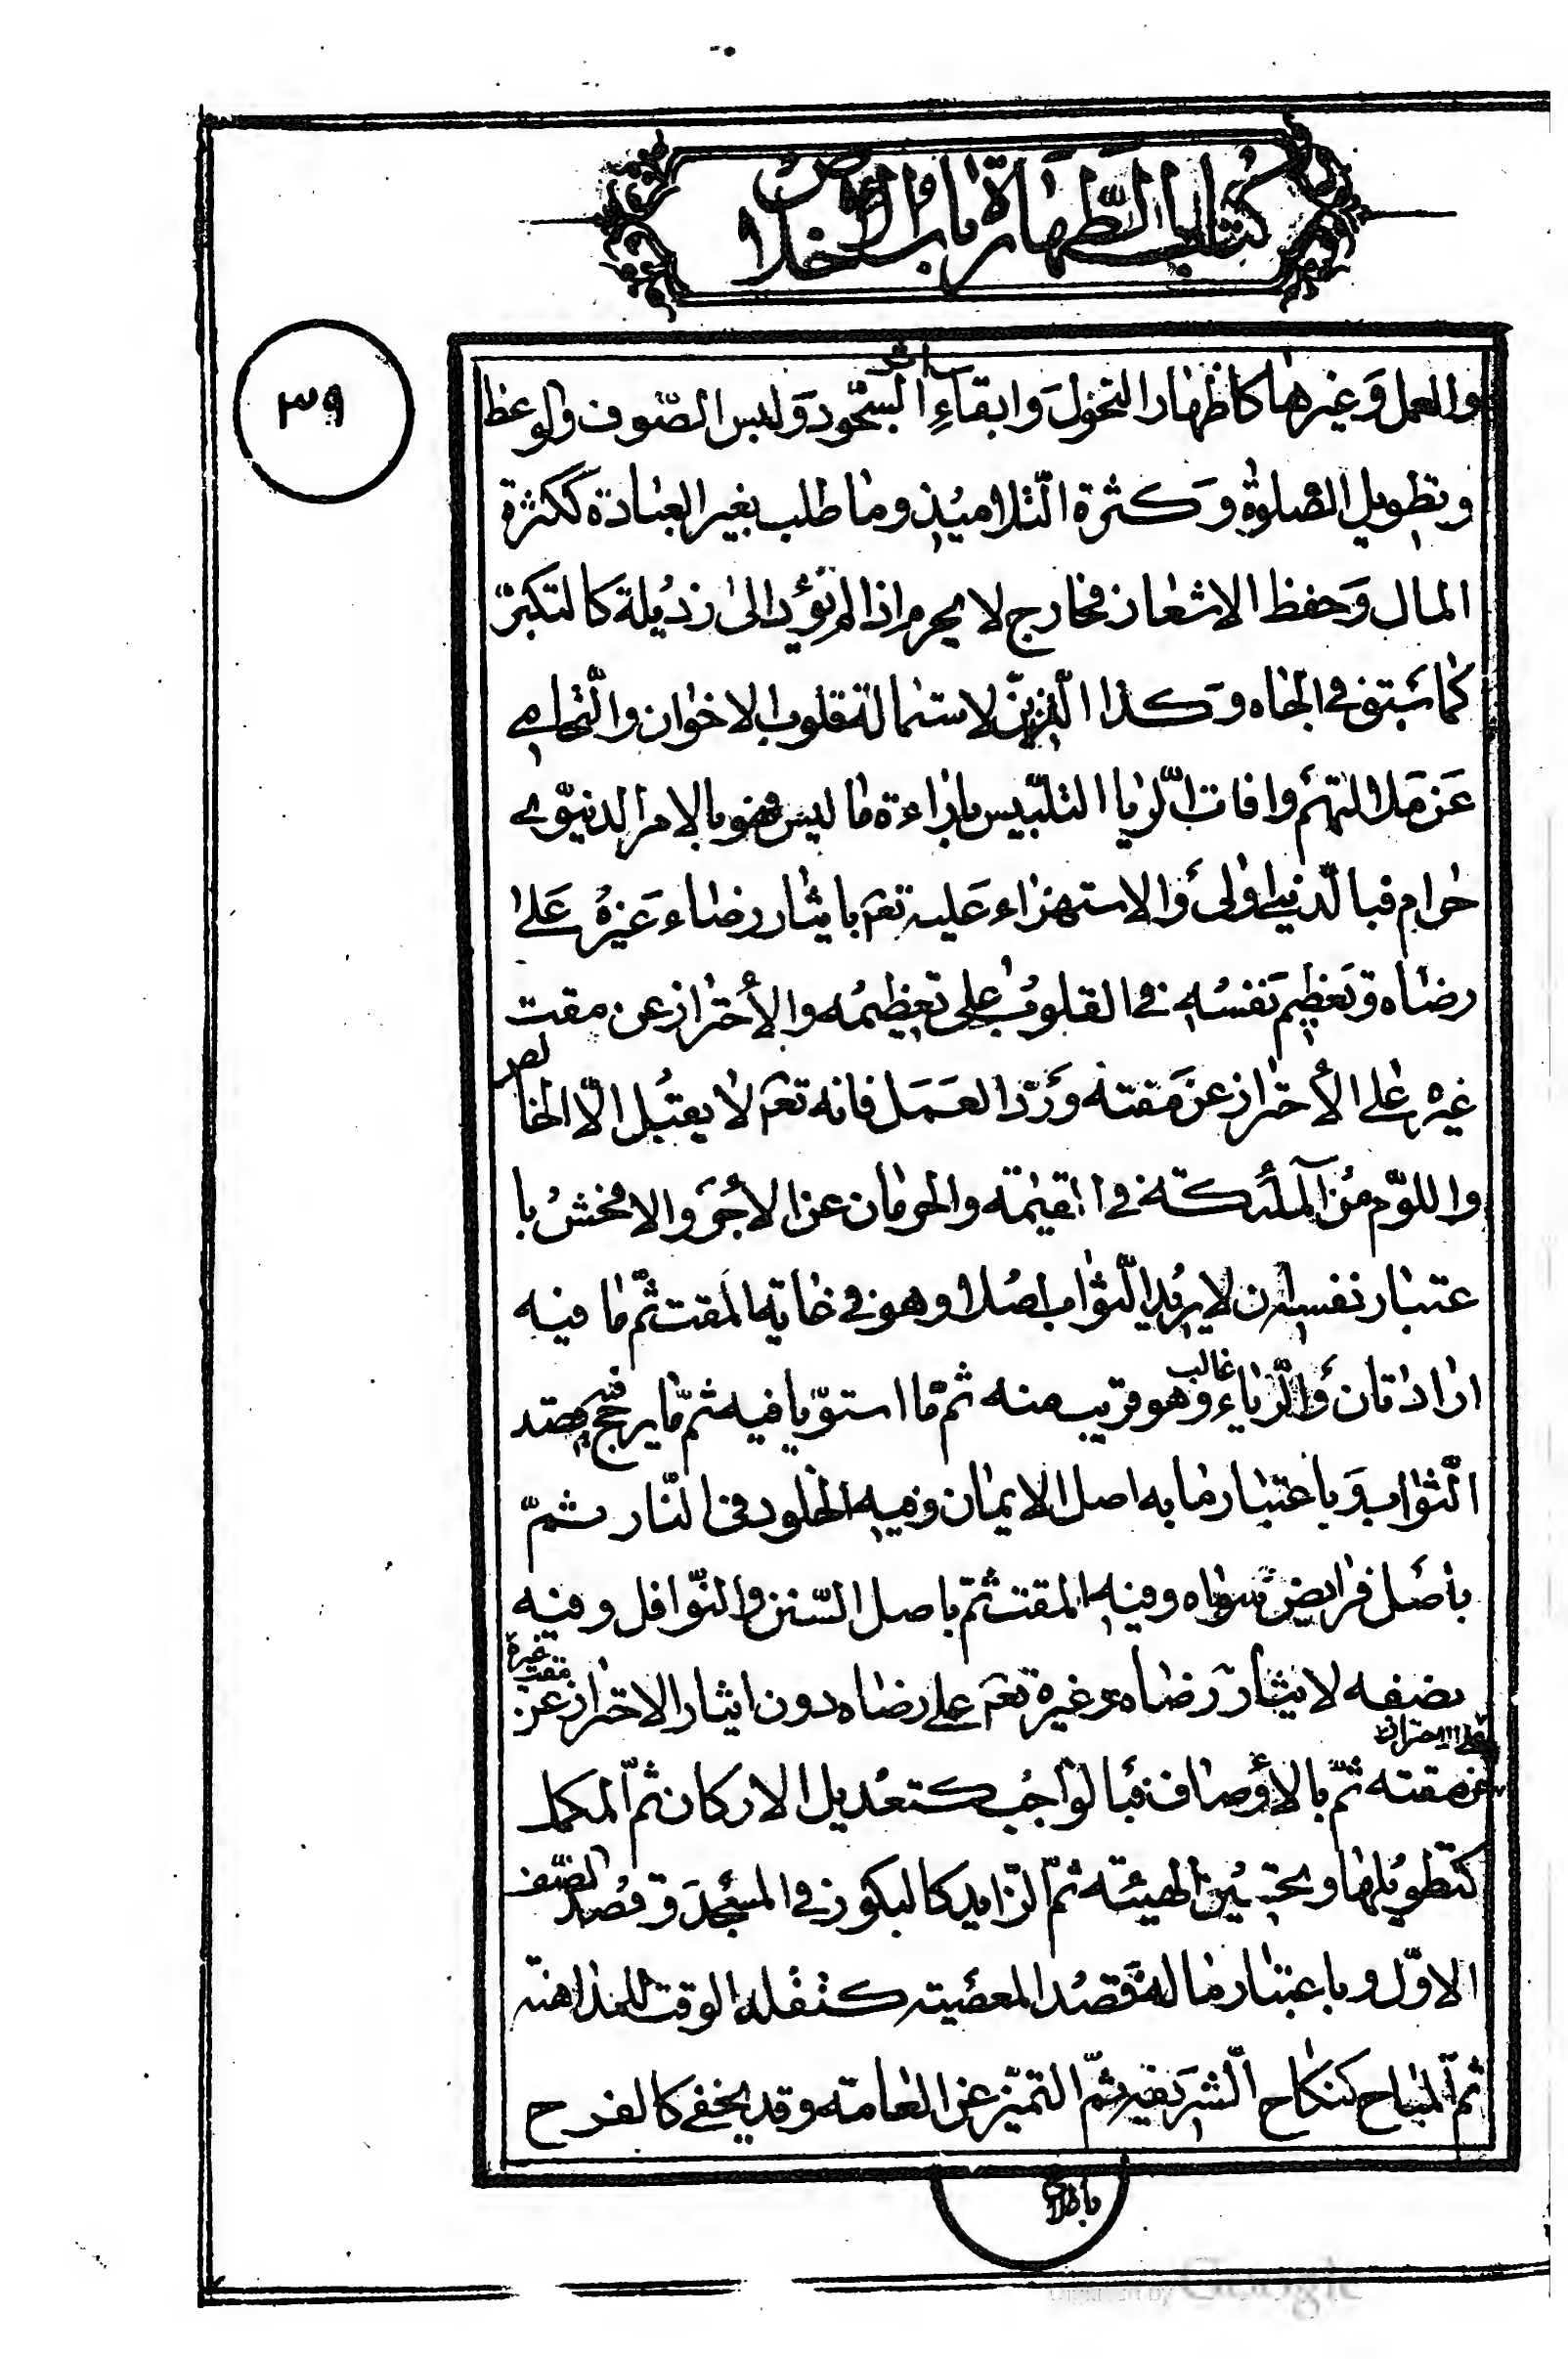 كتاب الطهارة باب الاخلاص
٣٩
والعمل وغيرها كاظهار النحول وابقاءِ اثر السجّود وَلبس الصّوف والوعظ
وتطويل الصّلوٰة وَكثرة التّلاميذ وما طلب بغير العبادة ككثرة
المال وَحفظ الاشعار فخارج لا يحرم اذا لم تؤد الى رذيلة كالتكبرّ
كما سَبتق في الجاه وَكذا التّزيّن لاستمالة قلوب الاخوان والتّحامي
عَن مَلا لتهم وافات الّريا التلبّيس باراءة ما ليس فهو بالامر الدنيّوي
حرام فبالّدنيي اولى وَالاستهزاء عَليه تعم بايثار رضاء غَيرهُ عَلى
رضاه وتعَظيم نَفسُه في القلوب على تعظيمُه والأحتراز عن مقت
غيره على الأحتراز عن مَقتهُ وَرَدّ العَمَل فانه تعم لا يقبُل الّا الخالص
واللوّم مُن آلملئكتهُ في القيمٰة والحرمان عن الأجُر والافحشُ با
عتبار نفسه ان لا يرُيد الّثواب اصُلا وهو في غاية المقت ثّم ما فيه
ارادتان وَالّرياء غالب وهو قريب منه ثم ما استوّيا فيه ثمّ ما يرجح فيه قصد
الّثواب وَباعتبار ما به اصل الايمان وفيه الخلود في الّنار ثمّ
باصَل فرايض سواه وفيه المقت ثمّ باصل السّنن والنّوافل وفيه
نصفه لايثار رَضاء غيره تعم على رضاه دون ايثار الاحتراز عن مقت غيره
على الاحتراز
عن مقته ثمّ بالأوصاف فبالواجُب كتعُديل الاركان ثمّ المكمل
كتطويُلها وتحسُين الهيئته ثمّ الّزايد كالبكور في المسجدَ وَقصُد الصّف
الاوّل وباعتبار ماله قصُد المعصَيته كنفله الوقت للمداهنته
ثم المباح كنكاح الّشريفه ثمّ التميّز عن العامته وقد يخفي كالفرح
باطلاع